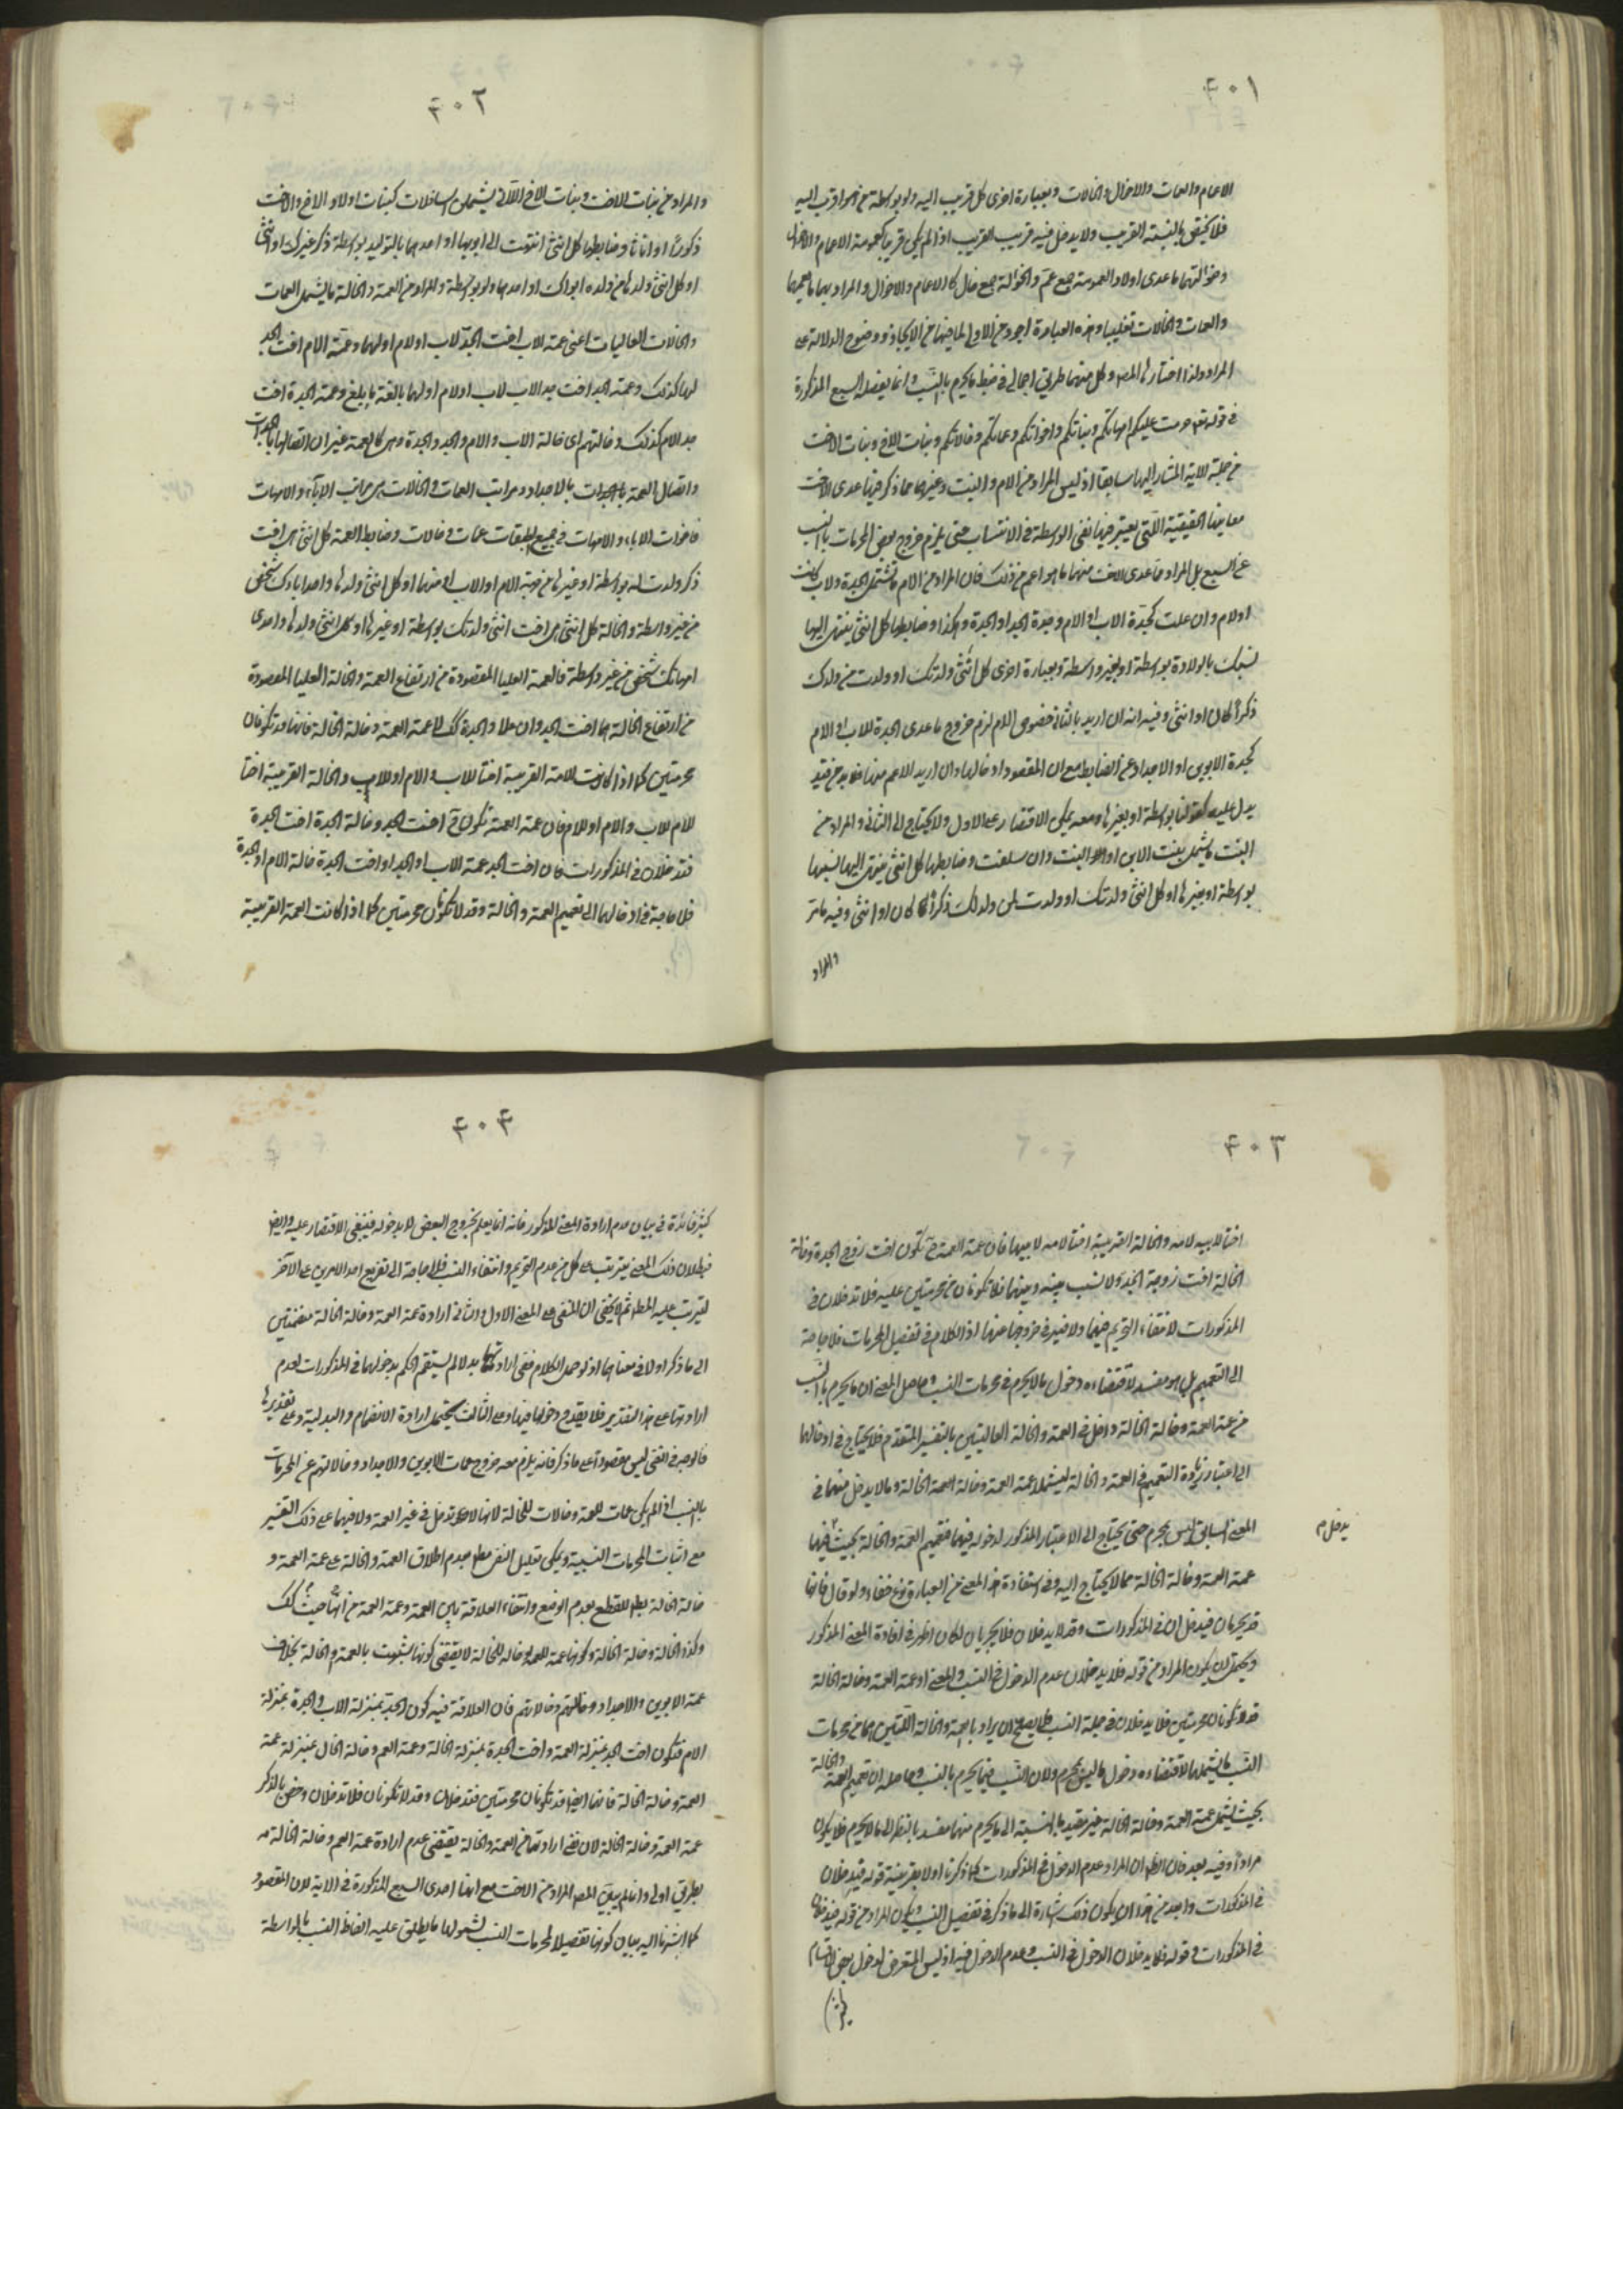 ۴۰۱
الاعمام والعمات والاخوال والخالات وبعبارة اخرى كل قريب اليه ولو بواسطة من هو اقرب اليه
فلا يكتفى بالنسبة القريب ولا يدخل فيه قريب القريب اذا لم يكن قريبا كعمومة الاعمام والاخوال
وخؤلتهما ما عدى اولاد العمومة جمع عم والخؤلة جمع خال كالاعمام والاخوال والمراد بهما ما يعمهما
والعمات والخالات تغليبا وهذه العبارة اجود من الاولى لما فيها من الايجاز ووضوح الدلالة على
المراد ولذا اختارها المص وكل منهما طريق اجمالى فى ضبط ما يحرم بالنسب وانما يفصله السبع المذكورة
فى قوله تع حرمت عليكم امهاتكم وبناتكم واخواتكم وعماتكم وخالاتكم وبنات الاخ وبنات الاخت
من جملة الاية المشار اليها سابقا اذ ليس المراد من الام والبنت وغيرهما مما ذكر فيها عدى الاخت
معانيها الحقيقية التى يعتبر فيها نفى الواسطة فى الانتساب حتى يلزم خروج بعض المحرمات بالنسب
عن السبع بل المراد مما عدى الاخت منها ما هو اعم من ذلك فان المراد من الام ما تشتمل الجدة ولاب كانت
او لام وان علت كجدة الاب او الام وجدة الجد او الجدة وهكذا وضابطها كل انثى ينتهى اليها
نسبك بالولادة بواسطة او بغير واسطة وبعبارة اخرى كل انثى ولدتك او ولدت من ولدك
ذكرا كان او انثى وفيه انه ان اريد بالثانى خصوص الام لزم خروج ما عدى الجدة للاب او الام
كجدة الابوين او الاجداد عن الضابط مع ان المقصود ادخالها وان اريد الاعم منها فلا بد من قيد
يدل عليه كقولنا بواسطة او بغيرها ومعه يمكن الاقتصار على الاول ولا يحتاج الى الثانى والمراد من
البنت ما يشمل بنت الابن او البنت وان سفلت وضابطها كل انثى ينتهى اليها نسبها
بواسطة او بغيرها او كل انثى ولدتك او ولدت من ولدك ذكرا كان او انثى وفيه ما مر
والمراد
۴۰۲
والمراد من بنات الاخت وبنات الاخ اللاتى يشملهن السافلات كبنات اولاد الاخ والاخت
ذكورا او اناثا وضابطها كل انثى انتهت الى ابويها او احدهما بالتوليد بواسطة ذكر غيرك او انثى
او كل انثى ولدها من ولده ابواك او احدهما ولو بواسطة والمراد من العمة والخالة ما يشمل العمات
والخالات العاليات اعنى عمة الاب اخت الجد لاب او لام او لهما وعمة الام اخت الجد
لهما كذلك وعمة الجد اخت جد الاب لاب او لام او لهما بالغة ما بلغ وعمة الجدة اخت
جد الام كذلك وخالتهم اى خالة الاب والام والجد والجدة وهى كالعمة غير ان اتصالها بالجدات
واتصال العمة بالاجداد ومراتب العمات والخالات هى مراتب الآباء والامهات
فاخوات الاباء والامهات فى جميع الطبقات عمات وخالات وضابط العمة كل انثى هى اخت
ذكر ولدت له بواسطة او غيرها من جهة الام او الاب او منهما او كل انثى ولدها واحد اباءك شخص
من غير واسطة والخالة كل انثى هى اخت انثى ولدتك بواسطة او غيرها او كل انثى ولدها واحدى
امهاتك شخص من غير واسطة فالعمة العليا المقصودة من ارتفاع العمة والخالة العليا المقصودة
من ارتفاع الخالة هما اخت الجد وان علا والجدة كك لا عمة العمة وخالة الخالة فانهما قد تكونان
محرمتين كما اذا كانت العمة القريبة اختا للاب والام او للاب والخالة القريبة اختا
للام للاب والام او للام فان عمة العمة تكون ح اخت الجد وخالة الجدة اخت الجدة
فتدخلان فى المذكورات فان اخت الجد عمة الاب او الجد او اخت الجدة خالة الام او الجدة
فلا حاجة فى ادخالهما الى تعميم العمة والخالة وقد لا تكونان محرمتين كما اذا كانت العمة القريبة
۴۰۳
اختا لابيه لامه والخالة القريبة اختا لامه لابيها فان عمة العمة ح تكون اخت زوج الجدة وخالة
الخالة اخت زوجة الجد ولا نسب بينه وبينهما فلا تكونان محرمتين عليه فلا تدخلان فى
المذكورات لانتفاء التحريم فيهما ولا ضير فى خروجهما منها اذ الكلام فى تفصيل المحرمات فلا حاجة
الى التعميم بل هو مفسد لاقتضاءه دخول ما لا يحرم فى محرمات النسب وحاصل المعنى ان ما يحرم بالنسب
من عمة العمة وخالة الخالة داخل فى العمة والخالة العاليتين بالتفسير المتقدم فلا يحتاج فى ادخالهما
الى اعتبار زيادة التعميم فى العمة والخالة ليشملا عمة العمة وخالة العمة الخالة وما لا يدخل منهما فى
المعنى السابق ليس بحرم حتى يحتاج الى الاعتبار المذكور لدخوله فيهما فتعميم العمة والخالة بحيث فيهما
يدخل م
عمة العمة وخالة الخالة مما لا يحتاج اليه وفى استفادة هذا المعنى من العبارة نوع خفاء ولو قال فانهما
قد يحرمان فيدخلان فى المذكورات وقد لا يدخلان فلا يحرمان لكان اظهر فى افادة المعنى المذكور
ويحتمل ان يكون المراد من قوله فلا يدخلان عدم الدخول فى النسب والمعنى او عمة العمة وخالة الخالة
قد لا تكونان محرمتين فلا يدخلان فى جملة النسب فلا يصلح ان يراد بالعمة والخالة اللتين هما من محرمات
النسب ما يشملهما لاقتضاءه دخول ما ليس بحرم ولان النسب فيما يحرم بالنسب وحاصله ان تعميم العمة والخالة
بحيث يشمل عمة العمة وخالة الخالة غير مقيد بالنسبة الى ما يحرم منهما مفسد بالنظر الى ما لا يحرم فلا يكون
مرادا وفيه بعد فان الظ ان المراد عدم الدخول فى المذكورات كما ذكرنا اولا بقرينة قوله فيدخلان
فى المذكورات وابعد من هذا ان يكون ذلك اشارة الى ما ذكر فى تفصيل النسب ويكون المراد من قوله فيدخلان
فى المذكورات وقوله فلا يدخلان الدخول فى النسب وعدم الدخول فيه اذ ليس المتعرض لدخول بعض الاقسام
۴۰۴
كثير فائدة فى بيان عدم ارادة المعنى المذكور فانه انما يعلم بخروج البعض لا بدخوله فينبغى الاقتصار عليه وايضا
فبطلان ذلك المعنى يترتب على كل من عدم التحريم وانتفاء النسب فلا حاجة الى تفريع احد الامرين على الآخر
ليترتب عليه المط ثم لا يخفى ان المنفى على المعنى الاول والثانى ارادة عمة العمة وخالة الخالة منضمتين
الى ما ذكر اولا فى معناهما اذ لو حمل الكلام فى ارادتهما بدلا لم يستقم الحكم بدخولهما فى المذكورات لعدم
ارادتهما على هذا التقدير فلا يقدح دخولهما فيها وعلى الثالث يحتمل ارادة الانضمام والبدلية وعلى تقديرها
فالوجه فى النفى ليس مقصودا على ما ذكر فانه يلزم معه خروج عمات الابوين والاجداد وخالاتهم عن المحرمات
بالنسب اذا لم يكن عمات للعمة وخالات للخالة لانها لا تدخل فى غير العمة ولا فيهما على ذلك التفسير
مع اثبات المحرمات النسبية ويمكن تعليل النفى مط بعدم اطلاق العمة والخالة على عمة العمة و
خالة الخالة مط للقطع بعدم الوضع وانتفاء العلاقة بين العمة وعمة العمة من انها حيث كك
وكذا الخالة وخالة الخالة وكونها عمة للعمة او خالة للخالة لا يقتضى كونها شبهت بالعمة والخالة بخلاف
عمة الابوين والاجداد وخالتهم وخالاتهم فان العلاقة فيه كون الجد بمنزلة الاب والجدة بمنزلة
الام فتكون اخت الجد بمنزلة العمة واخت الجدة بمنزلة الخالة وعمة العم وخالة الخال بمنزلة عمة
العمة وخالة الخالة فانهما ايضا قد تكونان محرمتين فتدخلان وقد لا تكونان فلا تدخلان وخص بالذكر
عمة العمة وخالة الخالة لان نفى ارادتهما من العمة والخالة يقتضى عدم ارادة عمة العم وخالة الخالة منه
بطريق اولى وانما لم يبين المص المراد من الاخت مع انها احدى السبع المذكورة فى الاية لان المقصود
كما اشرنا اليه بيان كونها تفصيلا لمحرمات النسب لشمولها ما يطلق عليه الفاظ النسب بالواسطة